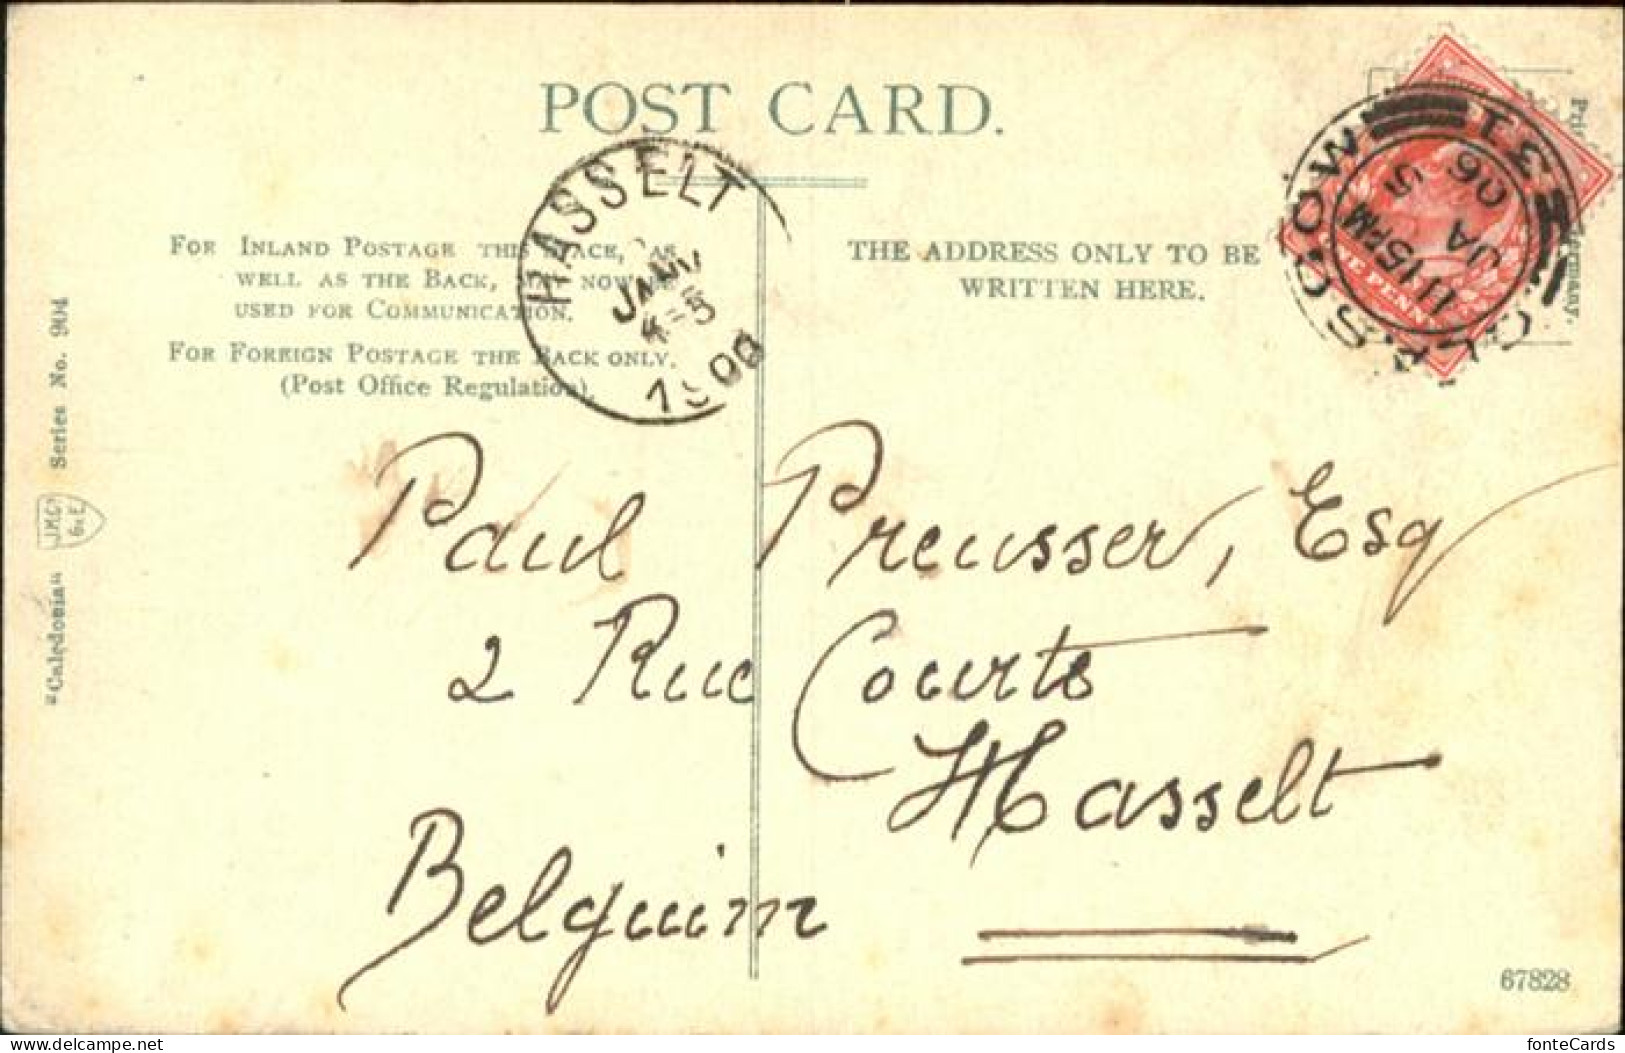 POST CARD.
HASSELT
JANV
4-5
1906
FOR INLAND POSTAGE THIS SPACE, AS
WELL AS THE BACK, MAY NOW BE
USED FOR COMMUNICATION.
FOR FOREIGN POSTAGE THE BACK ONLY.
(Post Office Regulation).
THE ADDRESS ONLY TO BE
WRITTEN HERE.
GLASGOW
11 15 PM
JA 5
06
"Caledonia" J.M.Co Series No. 904
Paul Preusser, Esq
2 Rue Courte
Hasselt
Belguim
67828
delcampe.net
fonteCards